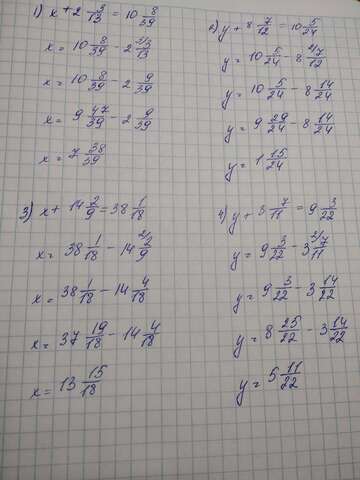 1) x + 2 3/13 = 10 8/39
x = 10 8/39 - 2 3/3/13
x = 10 8/39 - 2 9/39
x = 9 47/39 - 2 9/39
x = 7 38/39
2) y + 8 7/12 = 10 5/24
y = 10 5/24 - 8 2/7/12
y = 10 5/24 - 8 14/24
y = 9 29/24 - 8 14/24
y = 1 15/24
3) x + 14 2/9 = 38 1/18
x = 38 1/18 - 14 2/2/9
x = 38 1/18 - 14 4/18
x = 37 19/18 - 14 4/18
x = 13 15/18
4) y + 3 7/11 = 9 3/22
y = 9 3/22 - 3 2/7/11
y = 9 3/22 - 3 14/22
y = 8 25/22 - 3 14/22
y = 5 11/22